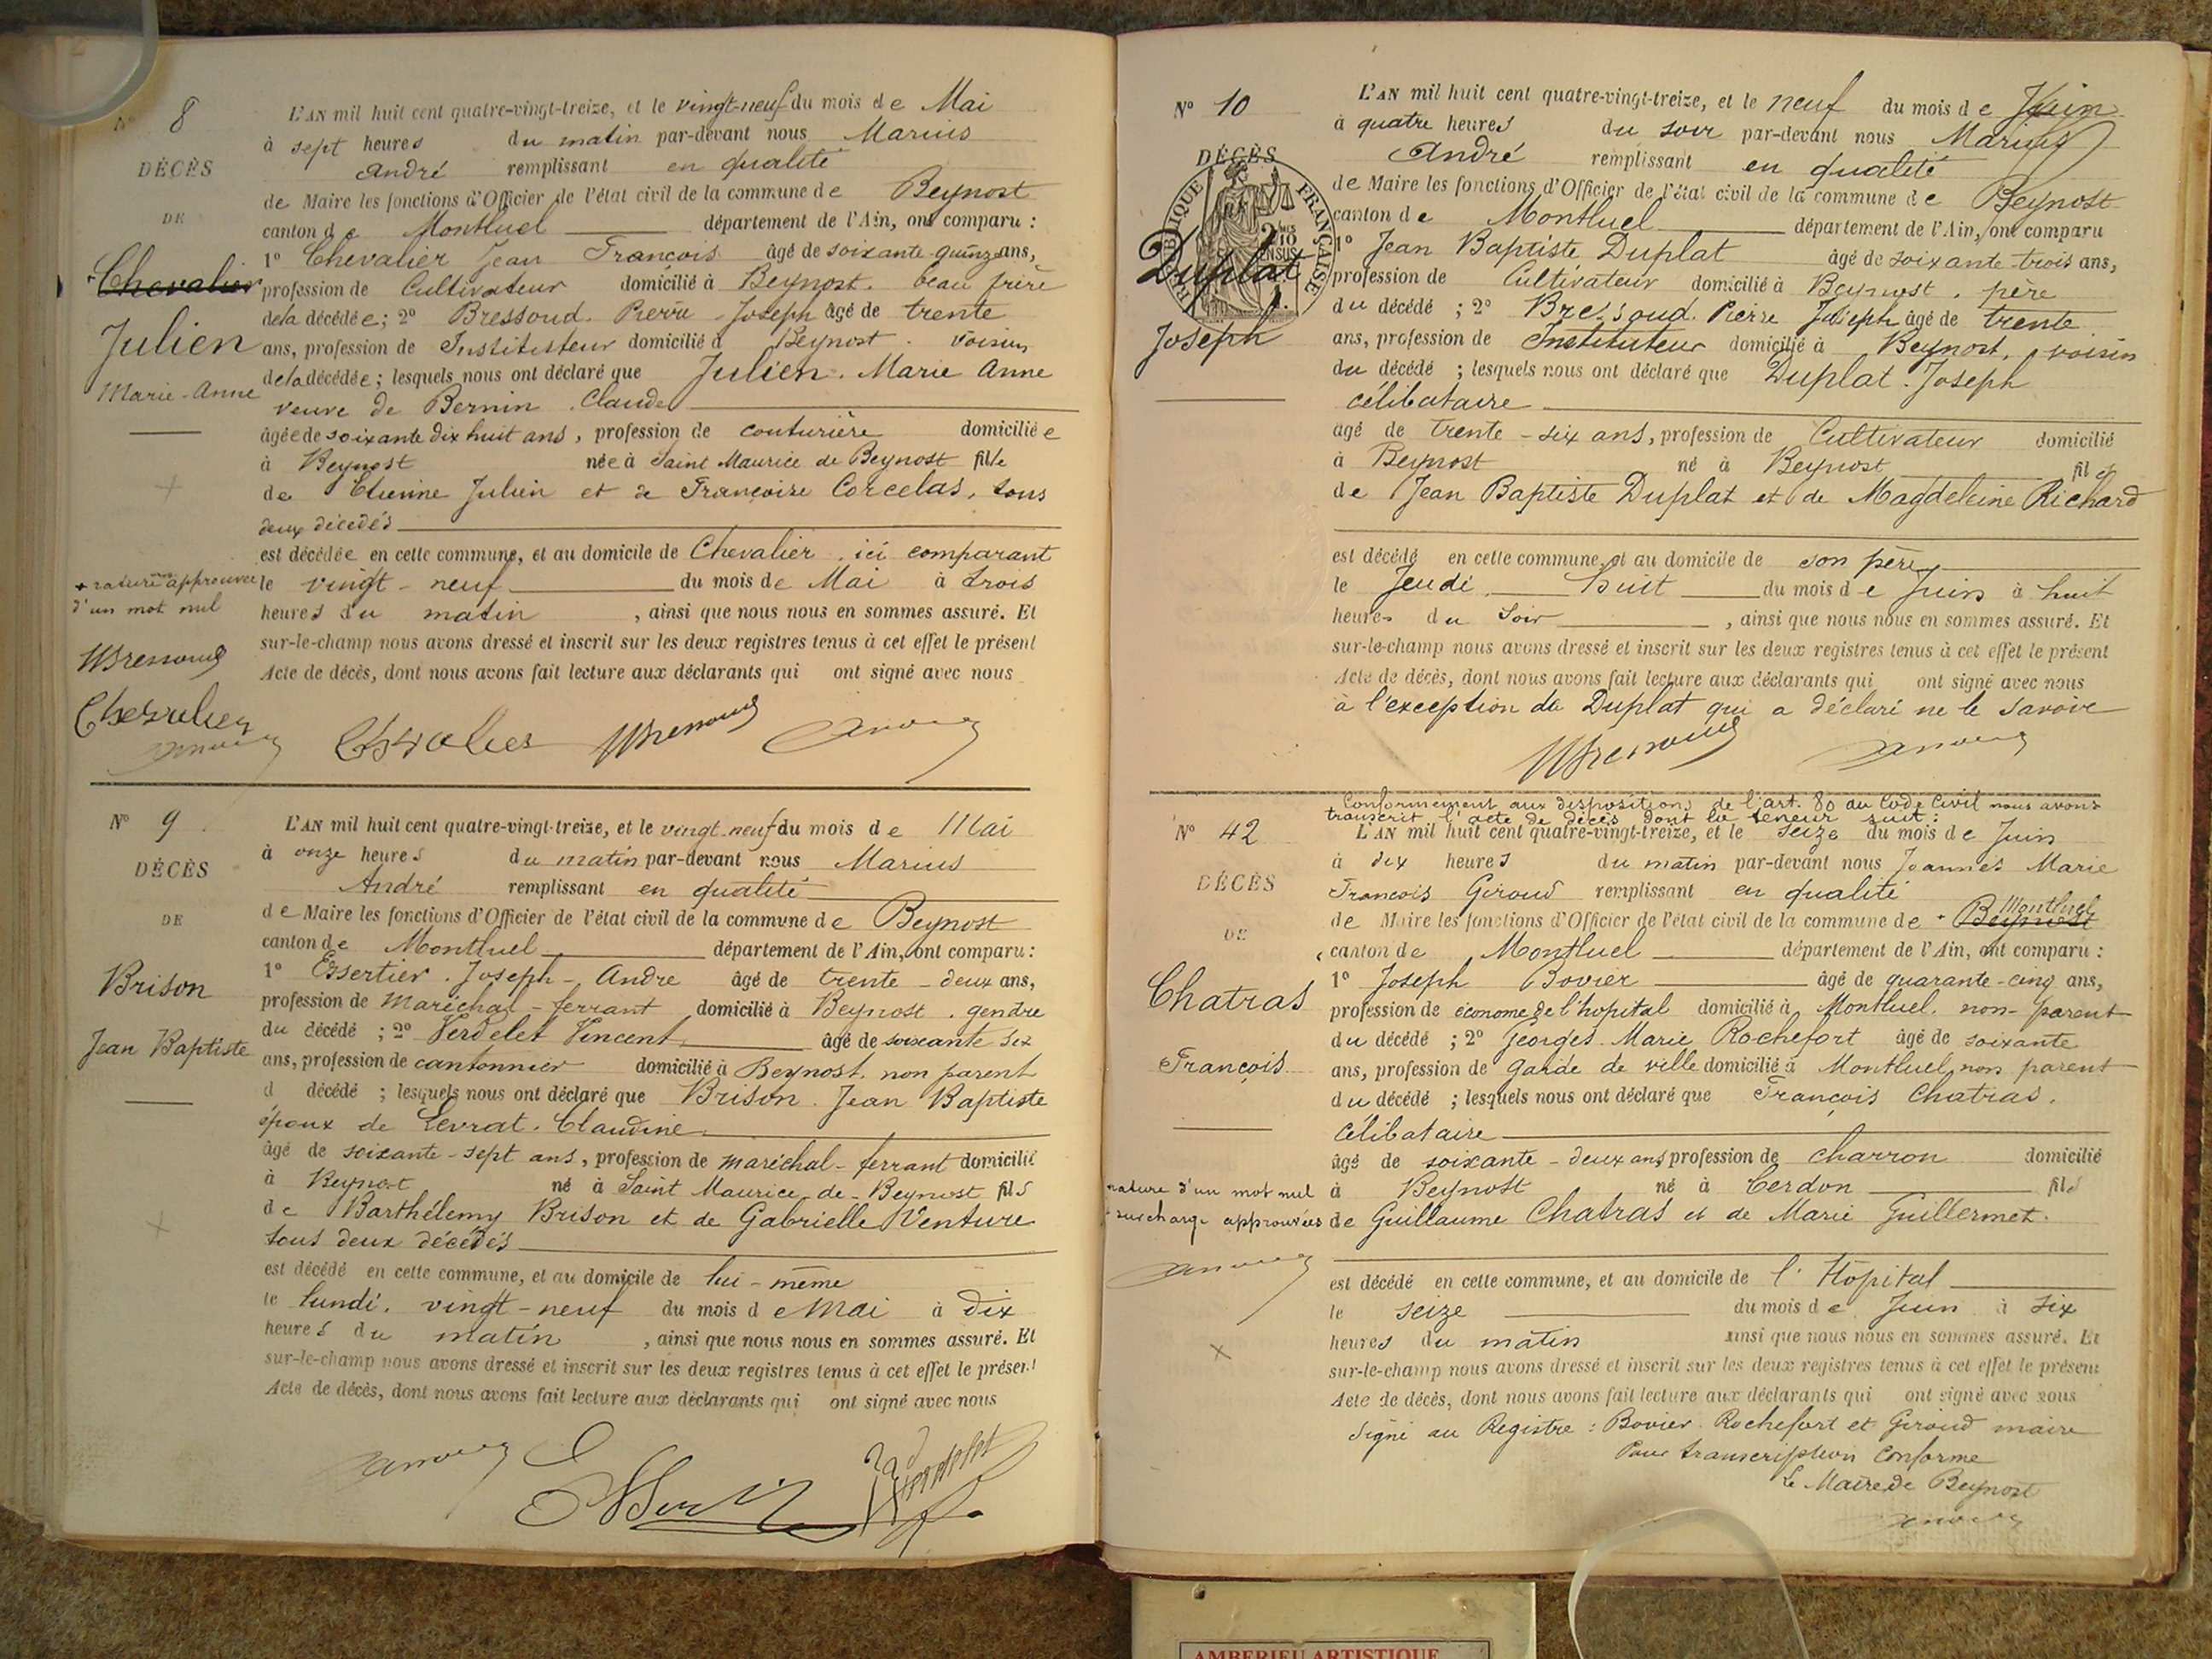 N° 8
DÉCÈS
DE
+ Chevalier
Julien
Marie-Anne
+ rature approuvée
d'un mot nul
Chevalier
L'AN mil huit cent quatre-vingt-treize, et le vingt-neuf du mois de Mai
à sept heures du matin par-devant nous Marius
André remplissant en qualité
de Maire les fonctions d'Officier de l'état civil de la commune de Beynost
canton de Montluel département de l'Ain, ont comparu :
1° Chevalier Jean François âgé de soixante-quinze ans,
profession de Cultivateur domicilié à Beynost. beau frère
de la décédée ; 2° Bressoud. Pierre-Joseph âgé de trente
ans, profession de Instituteur domicilié à Beynost. voisin
de la décédée ; lesquels nous ont déclaré que Julien. Marie Anne
veuve de Bernin. Claude
âgée de soixante dix huit ans, profession de couturière domiciliée
à Beynost née à Saint Maurice de Beynost fille
de Etienne Julien et de Françoise Corcelas, tous
deux décédés
est décédée en cette commune, et au domicile de Chevalier. ici comparant
le vingt-neuf du mois de Mai à trois
heures du matin, ainsi que nous nous en sommes assuré. Et
sur-le-champ nous avons dressé et inscrit sur les deux registres tenus à cet effet le présent
Acte de décès, dont nous avons fait lecture aux déclarants qui ont signé avec nous
Chevalier
N° 9
DÉCÈS
DE
Brison
Jean Baptiste
L'AN mil huit cent quatre-vingt-treize, et le vingt-neuf du mois de Mai
à onze heures du matin par-devant nous Marius
André remplissant en qualité
de Maire les fonctions d'Officier de l'état civil de la commune de Beynost
canton de Montluel département de l'Ain, ont comparu :
1° Essertier. Joseph-André âgé de trente-deux ans,
profession de maréchal-ferrant domicilié à Beynost. gendre
du décédé ; 2° Verdelet Vincent âgé de soixante six
ans, profession de cantonnier domicilié à Beynost. non parent
d décédé ; lesquels nous ont déclaré que Brison. Jean Baptiste
époux de Levrat. Claudine
âgé de soixante-sept ans, profession de maréchal-ferrant domicilié
à Beynost né à Saint Maurice-de-Beynost fils
de Barthélemy Brison et de Gabrielle Venture
tous deux décédés
est décédé en cette commune, et au domicile de lui-même
le lundi. vingt-neuf du mois de Mai à dix
heures du matin, ainsi que nous nous en sommes assuré. Et
sur-le-champ nous avons dressé et inscrit sur les deux registres tenus à cet effet le présent
Acte de décès, dont nous avons fait lecture aux déclarants qui ont signé avec nous
N° 10
DÉCÈS
RÉPUBLIQUE FRANÇAISE
Duplat
Joseph
L'AN mil huit cent quatre-vingt-treize, et le neuf du mois de Juin
à quatre heures du soir par-devant nous Marius
André remplissant en qualité
de Maire les fonctions d'Officier de l'état civil de la commune de Beynost
canton de Montluel département de l'Ain, ont comparu
1° Jean Baptiste Duplat âgé de soixante-trois ans,
profession de Cultivateur domicilié à Beynost. père
du décédé ; 2° Bressoud. Pierre Joseph âgé de trente
ans, profession de Instituteur domicilié à Beynost, voisin
du décédé ; lesquels nous ont déclaré que Duplat. Joseph
célibataire
âgé de trente-six ans, profession de Cultivateur domicilié
à Beynost né à Beynost fils
de Jean Baptiste Duplat et de Magdeleine Richard
est décédé en cette commune, et au domicile de son père
le Jeudi huit du mois de Juin à huit
heures du soir, ainsi que nous nous en sommes assuré. Et
sur-le-champ nous avons dressé et inscrit sur les deux registres tenus à cet effet le présent
Acte de décès, dont nous avons fait lecture aux déclarants qui ont signé avec nous
à l'exception de Duplat qui a déclaré ne le savoir
+ Conformément aux dispositions de l'art. 80 du Code Civil nous avons
transcrit l'acte de décès dont la teneur suit :
N° 42
DÉCÈS
DE
Chatras
François
rature d'un mot nul
surcharge approuvées
L'AN mil huit cent quatre-vingt-treize, et le seize du mois de Juin
à dix heures du matin par-devant nous Joannès Marie
François Giroud remplissant en qualité
de Maire les fonctions d'Officier de l'état civil de la commune de + Beynost Montluel
canton de Montluel département de l'Ain, ont comparu :
1° Joseph Bovier âgé de quarante-cinq ans,
profession de économe de l'hopital domicilié à Montluel. non-parent
du décédé ; 2° Georges. Marie Rochefort âgé de soixante
ans, profession de garde de ville domicilié à Montluel, non parent
du décédé ; lesquels nous ont déclaré que François Chatras.
célibataire
âgé de soixante-deux ans profession de charron domicilié
à Beynost né à Cerdon fils
de Guillaume Chatras et de Marie Guillermet.
est décédé en cette commune, et au domicile de l'Hopital
le seize du mois de Juin à six
heures du matin ainsi que nous nous en sommes assuré. Et
sur-le-champ nous avons dressé et inscrit sur les deux registres tenus à cet effet le présent
Acte de décès, dont nous avons fait lecture aux déclarants qui ont signé avec nous
Signé au Registre : Bovier. Rochefort et Giroud maire
Pour transcription conforme
Le Maire de Beynost
AMBERIEU ARTISTIQUE